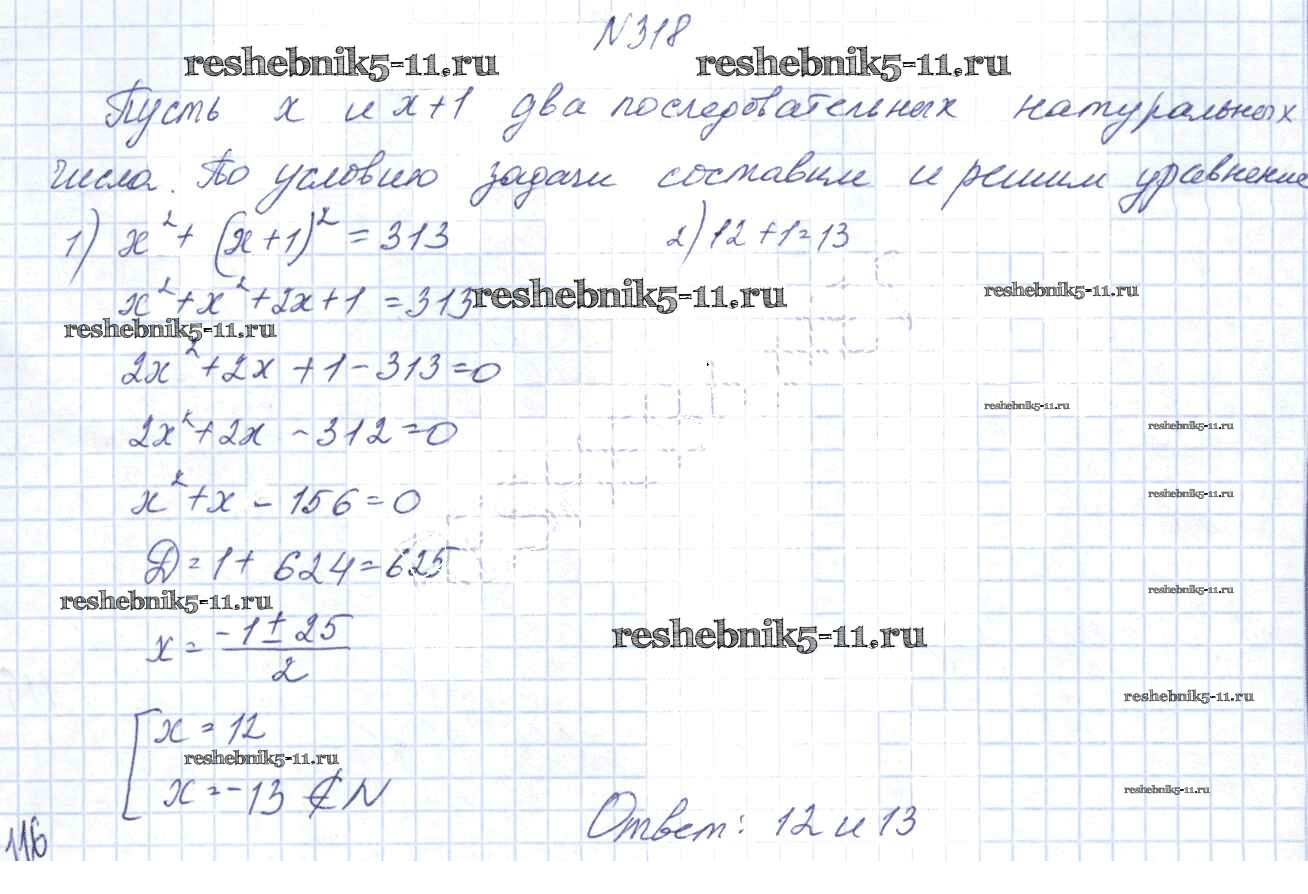 N318
reshebnik5-11.ru reshebnik5-11.ru
Пусть x и x+1 два последовательных натуральных
числа. По условию задачи составим и решим уравнение
1) x² + (x+1)² = 313 2) 12+1=13
x² + x² + 2x + 1 = 313 reshebnik5-11.ru reshebnik5-11.ru
reshebnik5-11.ru
2x² + 2x + 1 - 313 = 0
reshebnik5-11.ru
2x² + 2x - 312 = 0 reshebnik5-11.ru
x² + x - 156 = 0 reshebnik5-11.ru
D = 1 + 624 = 625
reshebnik5-11.ru reshebnik5-11.ru
x = (-1 ± 25)/2 reshebnik5-11.ru
reshebnik5-11.ru
[ x = 12
reshebnik5-11.ru
x = -13 ∉ N reshebnik5-11.ru
Ответ: 12 и 13
116